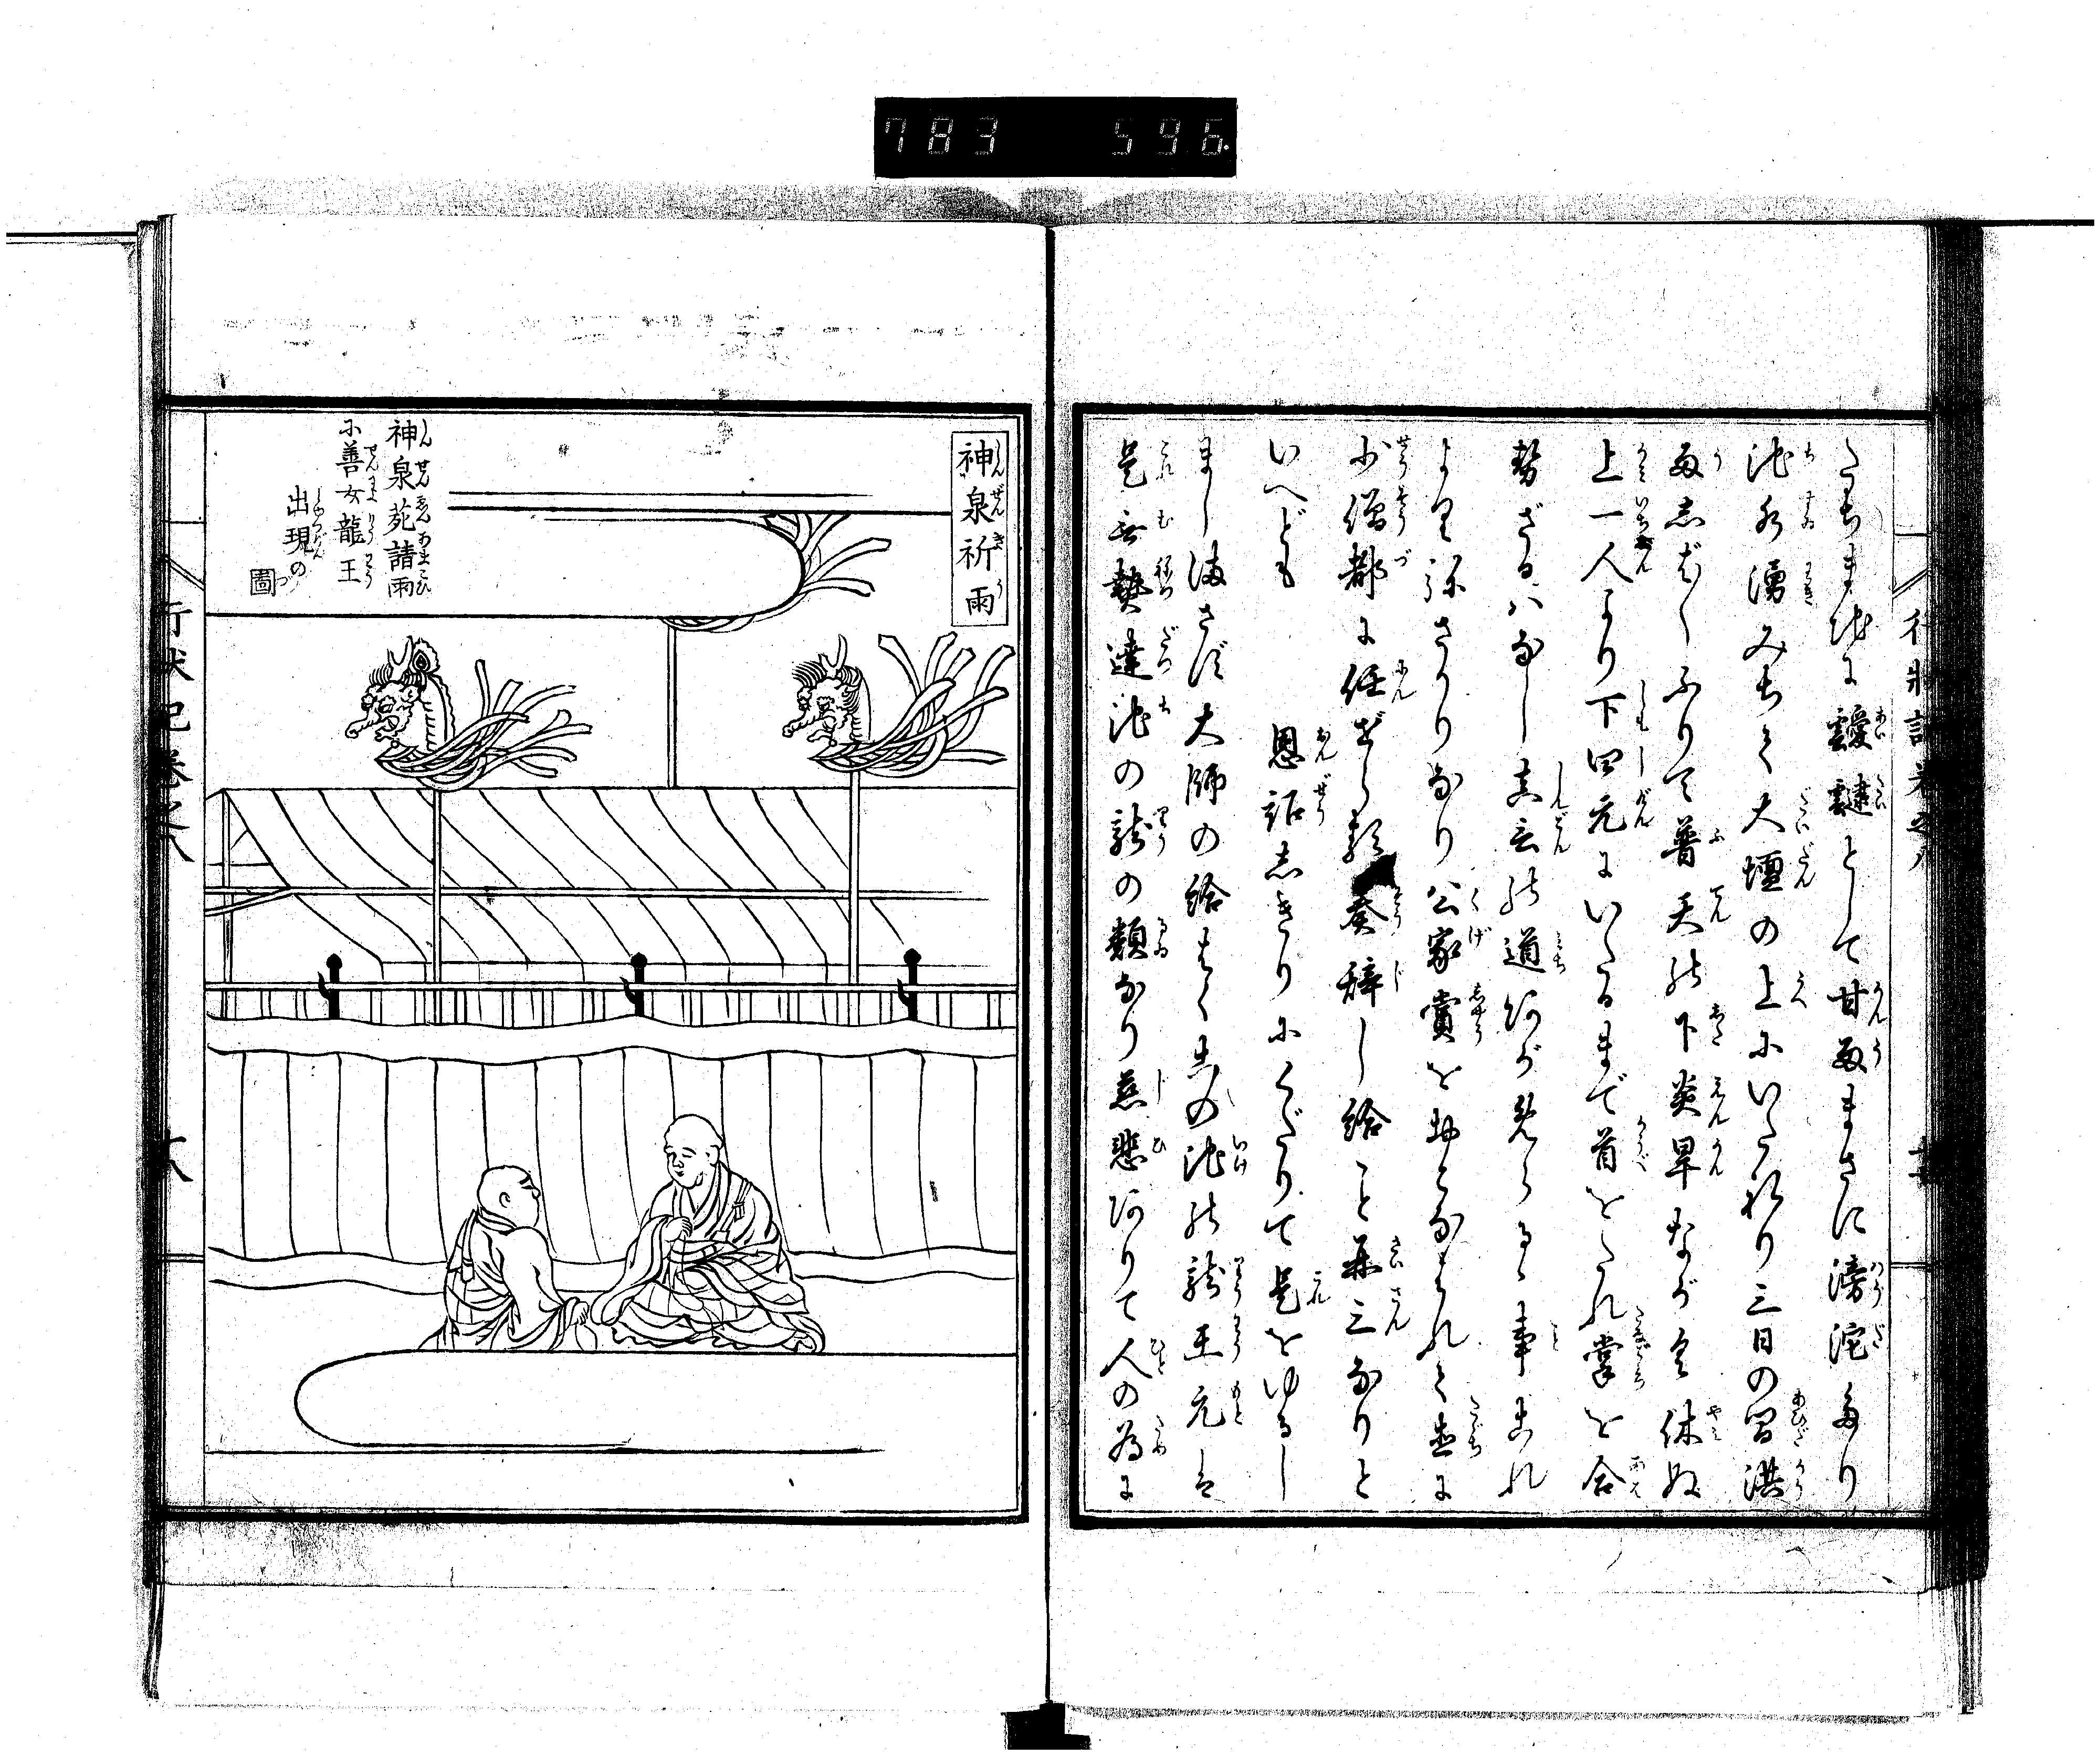 783 596
たちまちに靉靆として甘雨まさに滂沱たり
池水湧みちて大壇の上にいたれり三日の間洪
雨しばしふりて普天の下炎旱ながく休ぬ
上一人より下四元にいたるまで首をたれ掌を合
せざるハなし真言の道何が見らるゝ事これ
より弥さかりなり公家賞を
少僧都に任ぜらる 奏辞し給こと再三なりと
いへども 恩詔しきりにくだりて是をゆるし
ましまさず大師の給はく此の池の龍王元は
是無熱達池の龍の類なり慈悲ありて人の為に
神泉祈雨
神泉苑請雨
に善女龍王
出現の
圖
行状記巻之八